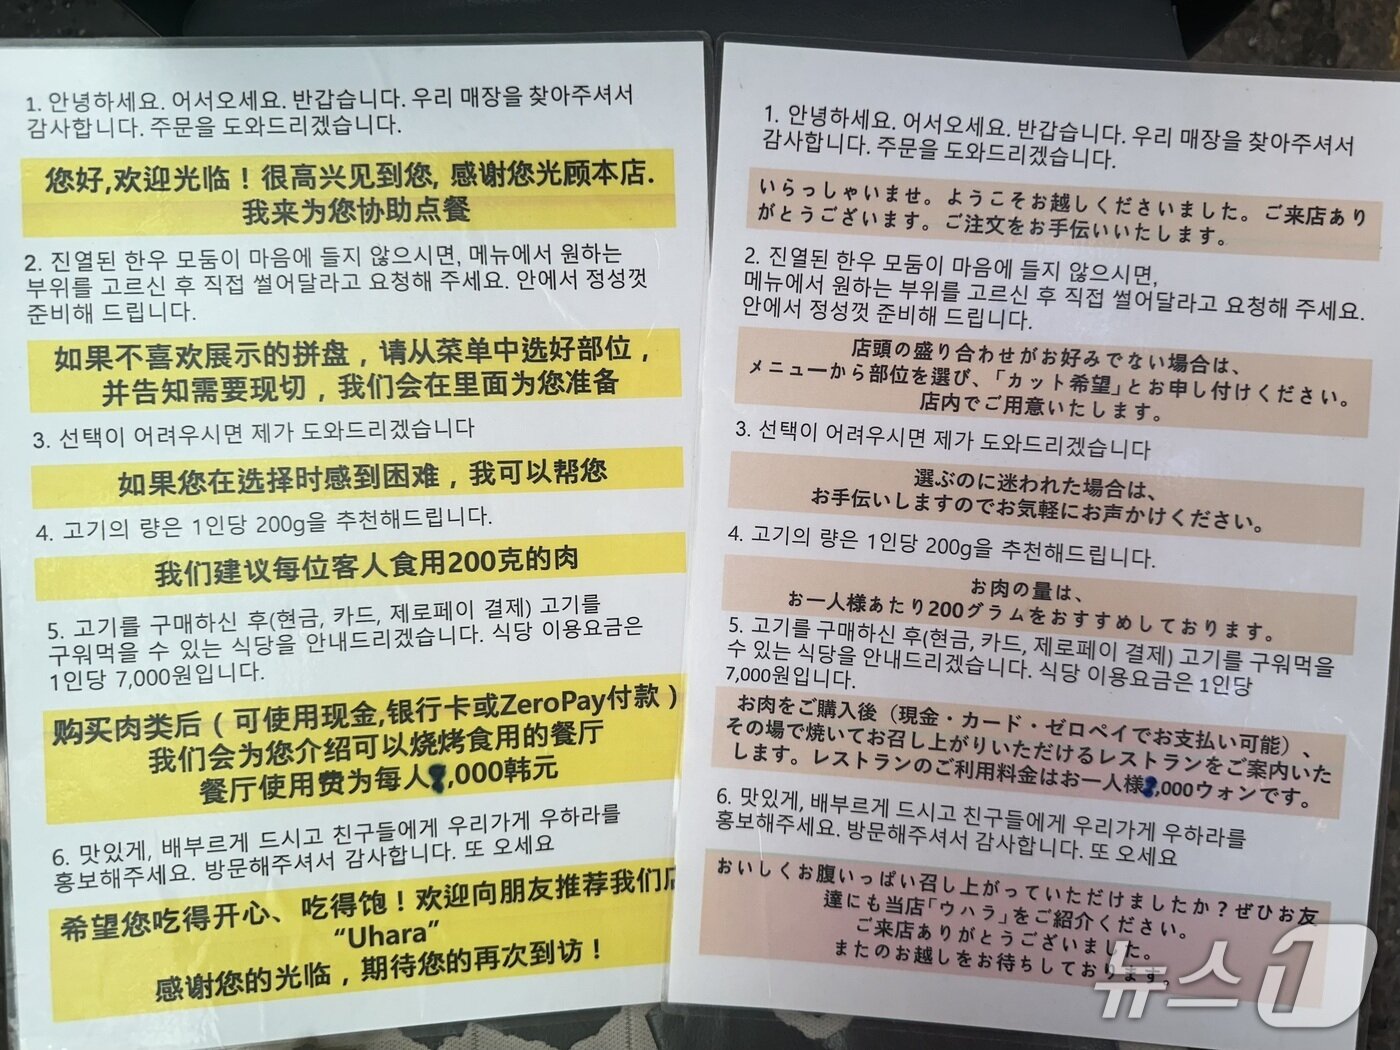 1. 안녕하세요. 어서오세요. 반갑습니다. 우리 매장을 찾아주셔서
감사합니다. 주문을 도와드리겠습니다.
您好,欢迎光临！很高兴见到您, 感谢您光顾本店.
我来为您协助点餐
2. 진열된 한우 모둠이 마음에 들지 않으시면, 메뉴에서 원하는
부위를 고르신 후 직접 썰어달라고 요청해 주세요. 안에서 정성껏
준비해 드립니다.
如果不喜欢展示的拼盘，请从菜单中选好部位，
并告知需要现切，我们会在里面为您准备
3. 선택이 어려우시면 제가 도와드리겠습니다
如果您在选择时感到困难，我可以帮您
4. 고기의 량은 1인당 200g을 추천해드립니다.
我们建议每位客人食用200克的肉
5. 고기를 구매하신 후(현금, 카드, 제로페이 결제) 고기를
구워먹을 수 있는 식당을 안내드리겠습니다. 식당 이용요금은
1인당 7,000원입니다.
购买肉类后（可使用现金,银行卡或ZeroPay付款）
我们会为您介绍可以烧烤食用的餐厅
餐厅使用费为每人,000韩元
6. 맛있게, 배부르게 드시고 친구들에게 우리가게 우하라를
홍보해주세요. 방문해주셔서 감사합니다. 또 오세요
希望您吃得开心、吃得饱！欢迎向朋友推荐我们店
“Uhara”
感谢您的光临，期待您的再次到访！
1. 안녕하세요. 어서오세요. 반갑습니다. 우리 매장을 찾아주셔서
감사합니다. 주문을 도와드리겠습니다.
いらっしゃいませ。ようこそお越しくださいました。ご来店あり
がとうございます。ご注文をお手伝いいたします。
2. 진열된 한우 모둠이 마음에 들지 않으시면,
메뉴에서 원하는 부위를 고르신 후 직접 썰어달라고 요청해 주세요.
안에서 정성껏 준비해 드립니다.
店頭の盛り合わせがお好みでない場合は、
メニューから部位を選び、「カット希望」とお申し付けください。
店内でご用意いたします。
3. 선택이 어려우시면 제가 도와드리겠습니다
選ぶのに迷われた場合は、
お手伝いしますのでお気軽にお声かけください。
4. 고기의 량은 1인당 200g을 추천해드립니다.
お肉の量は、
お一人様あたり200グラムをおすすめしております。
5. 고기를 구매하신 후(현금, 카드, 제로페이 결제) 고기를 구워먹을
수 있는 식당을 안내드리겠습니다. 식당 이용요금은 1인당
7,000원입니다.
お肉をご購入後（現金・カード・ゼロペイでお支払い可能）、
その場で焼いてお召し上がりいただけるレストランをご案内いた
します。レストランのご利用料金はお一人様,000ウォンです。
6. 맛있게, 배부르게 드시고 친구들에게 우리가게 우하라를
홍보해주세요. 방문해주셔서 감사합니다. 또 오세요
おいしくお腹いっぱい召し上がっていただけましたか？ぜひお友
達にも当店「ウハラ」をご紹介ください。
ご来店ありがとうございました。
またのお越しをお待ちしております。
뉴스1